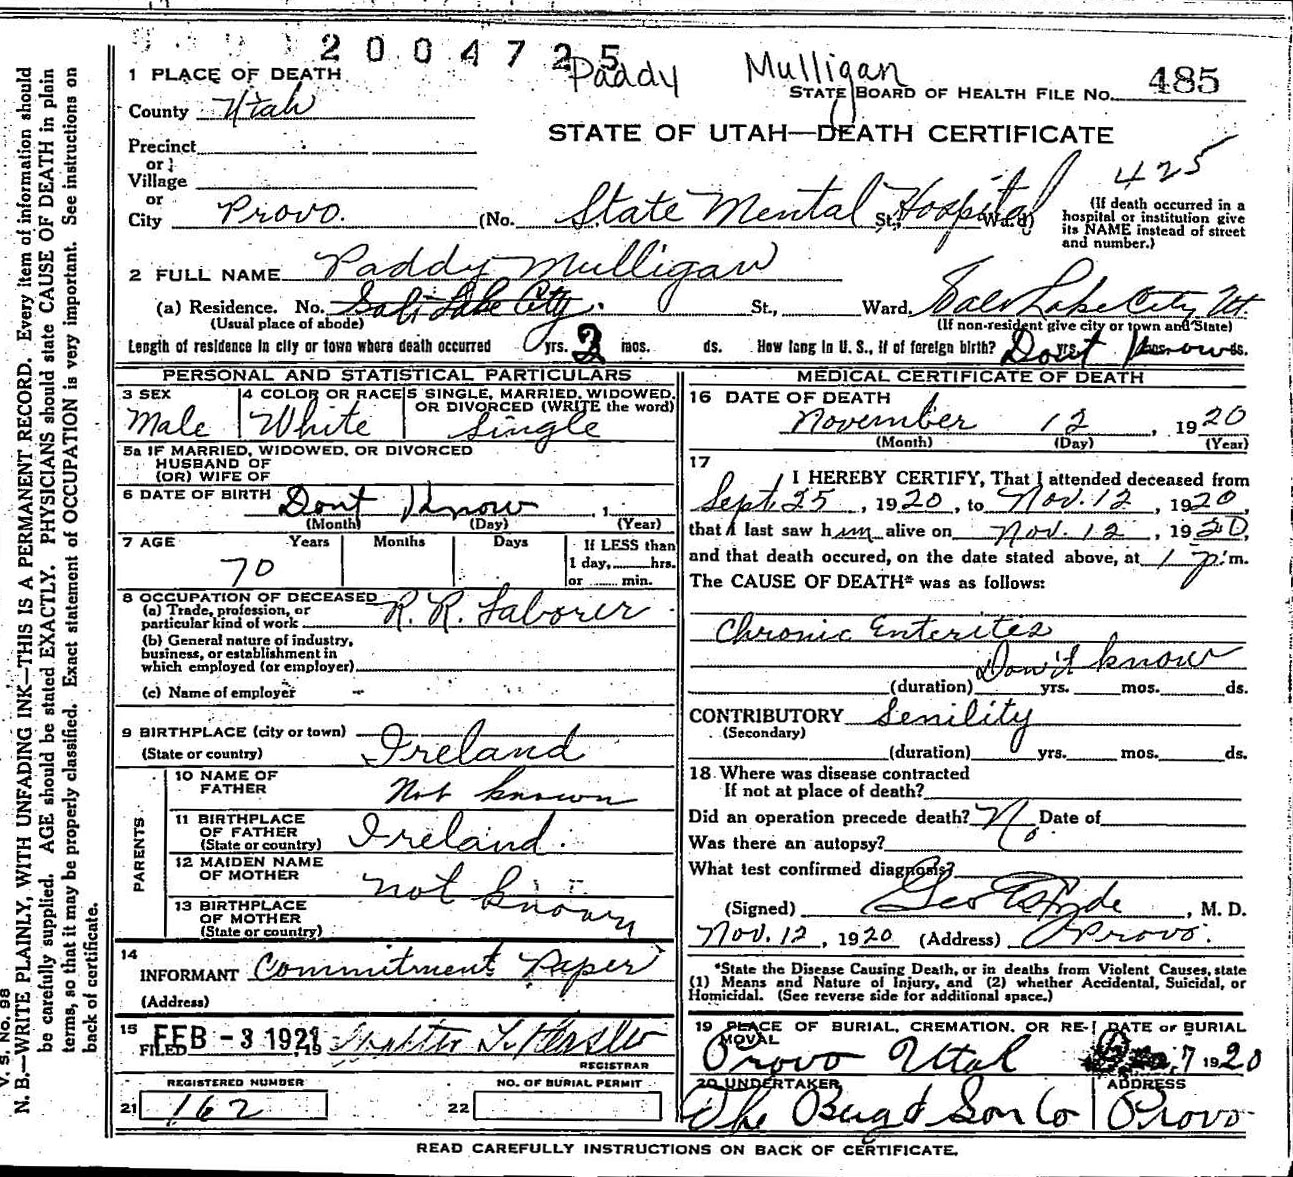 2004725
Paddy Mulligan
1 PLACE OF DEATH
STATE BOARD OF HEALTH FILE No. 485
County Utah
STATE OF UTAH—DEATH CERTIFICATE
Precinct
or
Village
425
or
City Provo. (No. State Mental Hospital St., Ward)
(If death occurred in a hospital or institution give its NAME instead of street and number.)
2 FULL NAME Paddy Mulligan
(a) Residence. No. Salt Lake City St., Ward. Salt Lake City Ut.
(Usual place of abode) (If non-resident give city or town and State)
Length of residence in city or town where death occurred yrs. mos. ds. How long in U. S., if of foreign birth? Dont Know yrs. mos. ds.
PERSONAL AND STATISTICAL PARTICULARS
3 SEX 4 COLOR OR RACE 5 SINGLE, MARRIED, WIDOWED, OR DIVORCED (WRITE the word)
Male White Single
5a IF MARRIED, WIDOWED, OR DIVORCED
HUSBAND OF
(OR) WIFE OF
6 DATE OF BIRTH Dont Know , 1
(Month) (Day) (Year)
7 AGE Years Months Days If LESS than
1 day, hrs.
70 or min.
8 OCCUPATION OF DECEASED
(a) Trade, profession, or
particular kind of work R. R. Laborer
(b) General nature of industry,
business, or establishment in
which employed (or employer)
(c) Name of employer -
9 BIRTHPLACE (city or town)
(State or country) Ireland
PARENTS
10 NAME OF
FATHER Not known
11 BIRTHPLACE
OF FATHER
(State or country) Ireland.
12 MAIDEN NAME
OF MOTHER not known
13 BIRTHPLACE
OF MOTHER
(State or country)
14
INFORMANT Commitment Paper
(Address)
15 FEB -3 1921
FILED , 19
REGISTRAR
REGISTERED NUMBER NO. OF BURIAL PERMIT
21 162 22
MEDICAL CERTIFICATE OF DEATH
16 DATE OF DEATH
November 12 , 1920
(Month) (Day) (Year)
17
I HEREBY CERTIFY, That I attended deceased from
Sept. 25 , 1920, to Nov. 12 , 1920,
that I last saw him alive on Nov. 12 , 1920,
and that death occured, on the date stated above, at 1 p.m.
The CAUSE OF DEATH* was as follows:
Chronic Enterites
Don't know
(duration) yrs. mos. ds.
CONTRIBUTORY Senility
(Secondary)
(duration) yrs. mos. ds.
18 Where was disease contracted
If not at place of death?
Did an operation precede death? No Date of
Was there an autopsy?
What test confirmed diagnosis?
(Signed) Geo E Hyde , M. D.
Nov. 12 , 1920 (Address) Provo.
*State the Disease Causing Death, or in deaths from Violent Causes, state
(1) Means and Nature of Injury, and (2) whether Accidental, Suicidal, or
Homicidal. (See reverse side for additional space.)
19 PLACE OF BURIAL, CREMATION, OR RE- DATE OF BURIAL
MOVAL
Provo Utah 1920
20 UNDERTAKER ADDRESS
The Berg & Son Co Provo
READ CAREFULLY INSTRUCTIONS ON BACK OF CERTIFICATE.
V. S. No. 98
N. B.—WRITE PLAINLY, WITH UNFADING INK—THIS IS A PERMANENT RECORD. Every item of information should
be carefully supplied. AGE should be stated EXACTLY. PHYSICIANS should state CAUSE OF DEATH in plain
terms, so that it may be properly classified. Exact statement of OCCUPATION is very important. See instructions on
back of certificate.